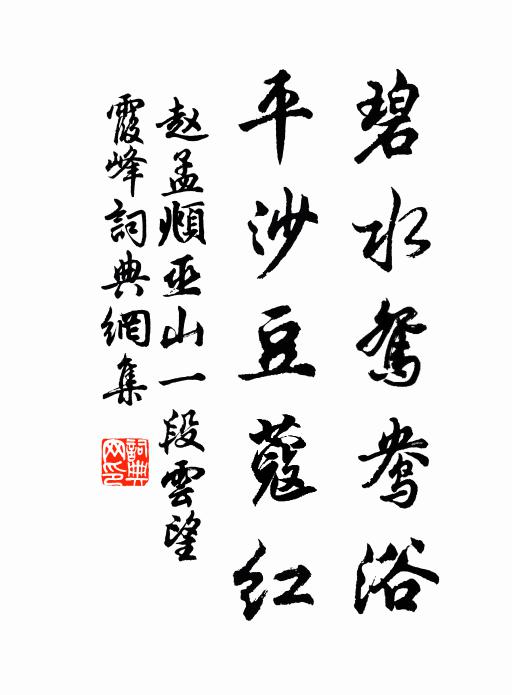 碧水鴛鴦浴
平沙豆蔻紅
赵孟頫巫山一段雲望
霞峰詞典網集
詞典
网印